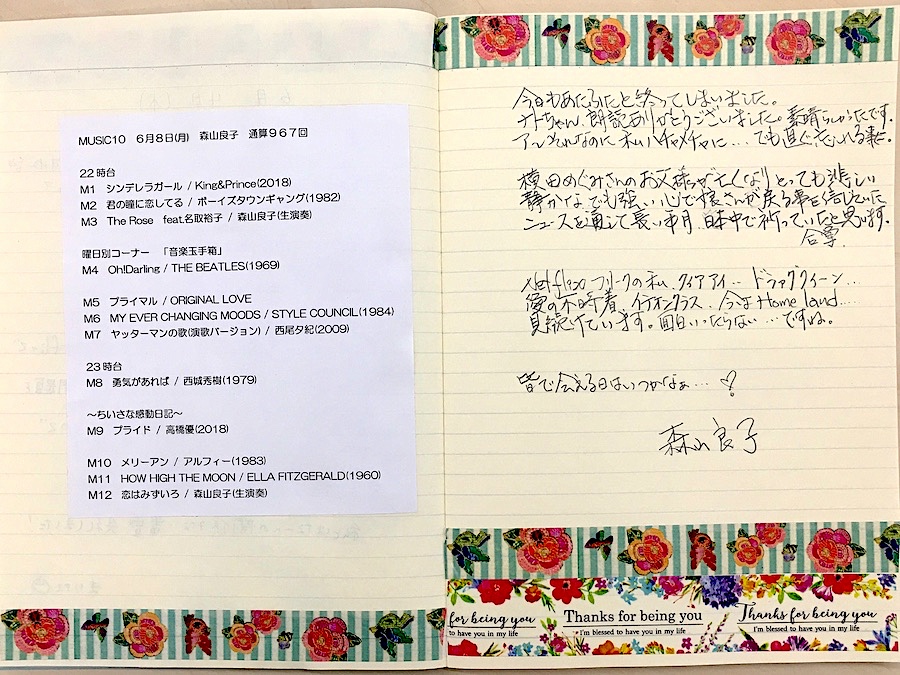 MUSIC10　6月8日(月)　森山良子　通算967回
22時台
M1　シンデレラガール / King&Prince(2018)
M2　君の瞳に恋してる / ボーイズタウンギャング(1982)
M3　The Rose　feat.名取裕子 / 森山良子(生演奏)
曜日別コーナー　「音楽玉手箱」
M4　Oh!Darling / THE BEATLES(1969)
M5　プライマル / ORIGINAL LOVE
M6　MY EVER CHANGING MOODS / STYLE COUNCIL(1984)
M7　ヤッターマンの歌(演歌バージョン) / 西尾夕紀(2009)
23時台
M8　勇気があれば / 西城秀樹(1979)
～ちいさな感動日記～
M9　プライド / 高橋優(2018)
M10　メリーアン / アルフィー(1983)
M11　HOW HIGH THE MOON / ELLA FITZGERALD(1960)
M12　恋はみずいろ / 森山良子(生演奏)
今日もあたふたと終ってしまいました。
ナトちゃん、朗読ありがとうございました。素晴らしかったです。
そんなのに私ハチャメチャに…でも直ぐ忘れる事に。
横田めぐみさんのお父様が亡くなりとっても悲しい
静かな、でも強い心で娘さんが戻る事を信じていた
ニュースを通して長い年月、日本中で祈っていたと思います。
合掌
Netflixフリークの私、クィアアイ… ドラァグクィーン…
愛の不時着、イテオンクラス、今は Home land…
見続けています。面白いったらない…ですね。
皆で会える日はいつかなぁ…♡
森山良子
for being you
to have you in my life
Thanks for being you
I'm blessed to have you in my life
Thanks for being you
I'm blessed to have you in my life